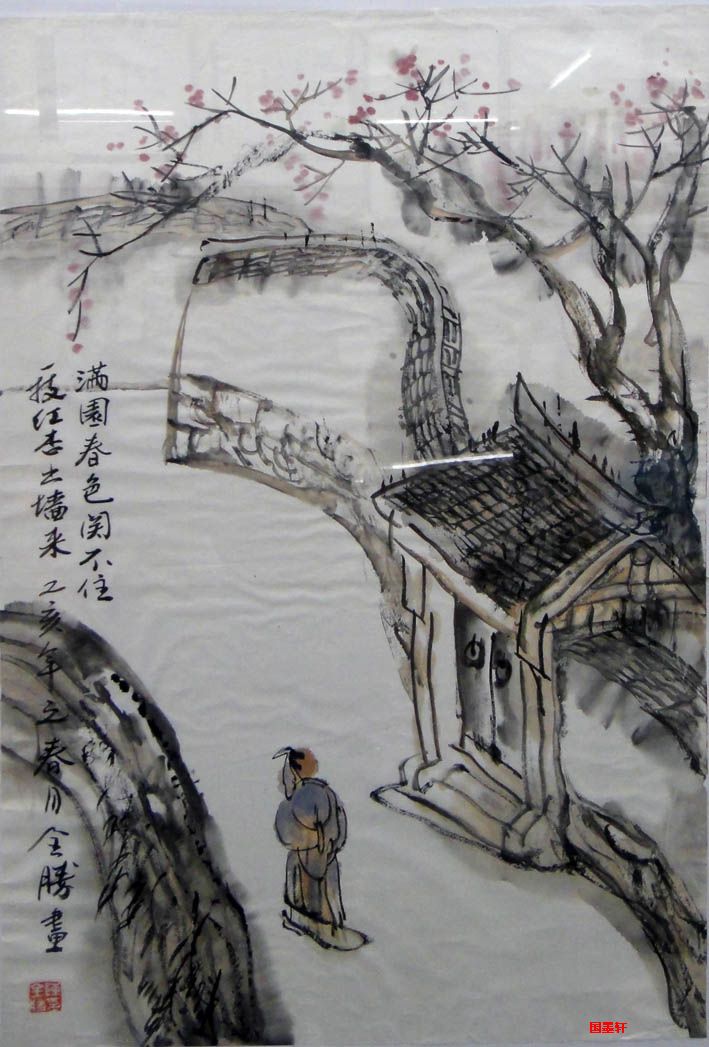 满園春色関不住
一枝红杏出墙来 乙亥年之春月全勝畫
国墨轩